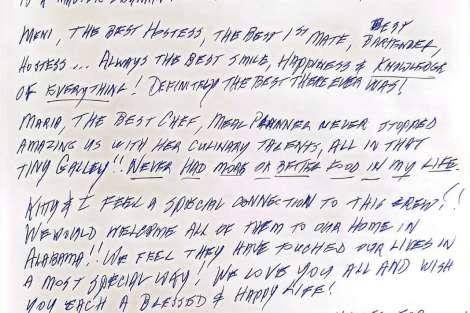 MENI, THE BEST HOSTESS, THE BEST 1ST MATE, BEST BARTENDER,
HOSTESS... ALWAYS THE BEST SMILE, HAPPINESS & KNOWLEDGE
OF EVERYTHING! DEFINITELY THE BEST THERE EVER WAS!
MARIA, THE BEST CHEF, MEAL PLANNER NEVER STOPPED
AMAZING US WITH HER CULINARY TALENTS, ALL IN THAT
TINY GALLEY!! NEVER HAD MORE OR BETTER FOOD IN MY LIFE.
KITTY & I FEEL A SPECIAL CONNECTION TO THIS CREW!!
WE WOULD WELCOME ALL OF THEM TO OUR HOME IN
ALABAMA!! WE FEEL THEY HAVE TOUCHED OUR LIVES IN
A MOST SPECIAL WAY! WE LOVE YOU ALL AND WISH
YOU EACH A BLESSED & HAPPY LIFE!